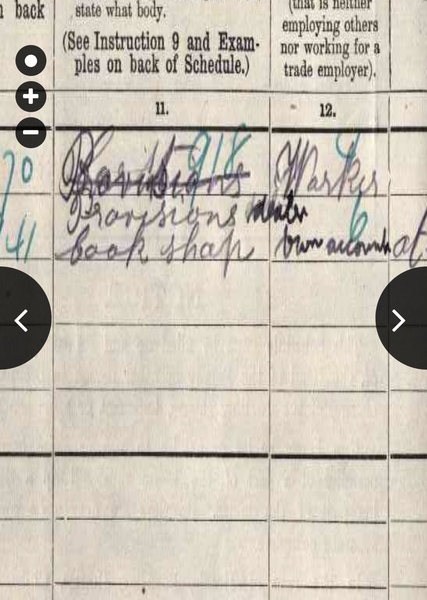 n back
state what body.
(See Instruction 9 and Exam-
ples on back of Schedule.)
(that is neither
employing others
nor working for a
trade employer).
11.
12.
70
918
Provisions
Worker
Provisions dealer
41
6
book shop
own account
at